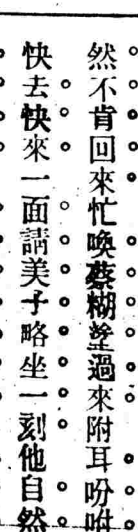 然不肯回來忙喚蔡糊塗過來附耳吩咐
快去快來一面請美子略坐一刻他自然